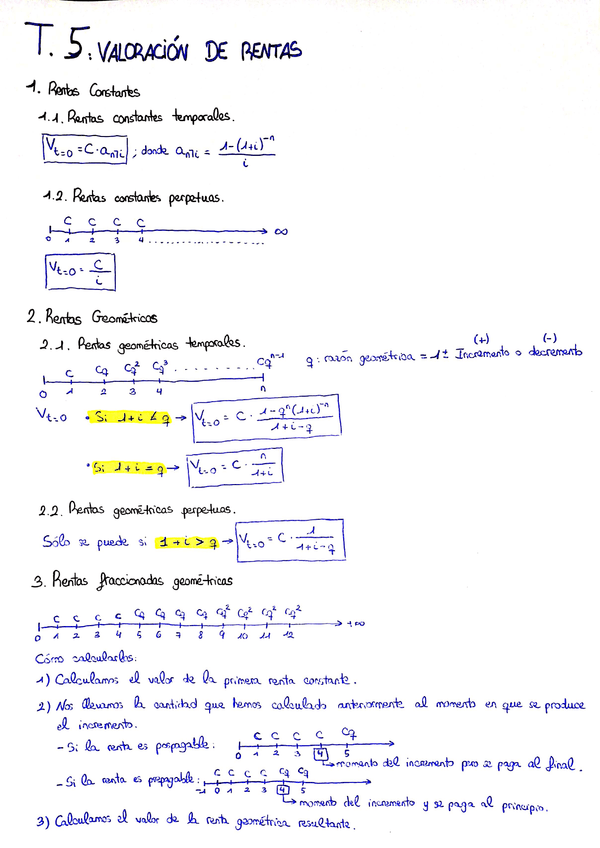 T. 5: VALORACIÓN DE RENTAS
1. Rentas Constantes
1.1. Rentas constantes temporales.
V_{t=0} = C · a_{n┐i} ; donde a_{n┐i} = \frac{1-(1+i)^{-n}}{i}
1.2. Rentas constantes perpetuas.
C C C C
0 1 2 3 4 .................... ∞
V_{t=0} = \frac{C}{i}
2. Rentas Geométricas
2.1. Rentas geométricas temporales.
(+) (-)
q: razón geométrica = 1 ± Incremento o decremento
C Cq Cq² Cq³ ........ Cq^{n-1}
0 1 2 3 4 n
V_{t=0} • Si 1+i ≠ q → V_{t=0} = C · \frac{1-q^n(1+i)^{-n}}{1+i-q}
• Si 1+i = q → V_{t=0} = C · \frac{n}{1+i}
2.2. Rentas geométricas perpetuas.
Sólo se puede si 1+i > q → V_{t=0} = C · \frac{1}{1+i-q}
3. Rentas fraccionadas geométricas
C C C C Cq Cq Cq Cq Cq² Cq² Cq² Cq²
0 1 2 3 4 5 6 7 8 9 10 11 12 → +∞
Cómo calcularlos:
1) Calculamos el valor de la primera renta constante.
2) Nos llevamos la cantidad que hemos calculado anteriormente al momento en que se produce
el incremento.
- Si la renta es pospagable:
C C C C Cq
0 1 2 3 4 5
→ momento del incremento pero se paga al final.
- Si la renta es prepagable:
C C C C Cq Cq
-1 0 1 2 3 4 5
→ momento del incremento y se paga al principio.
3) Calculamos el valor de la renta geométrica resultante.